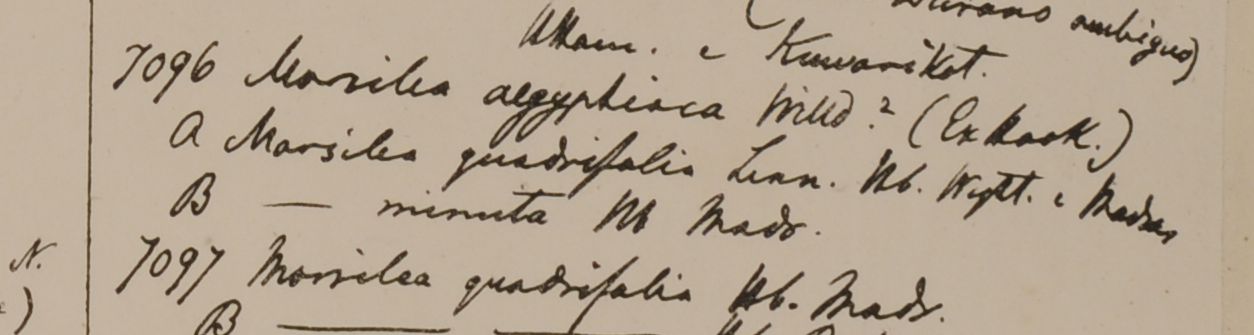 ambiguo)
Kuwarikot.
7096 Marsilea aegyptiaca Willd? (Ex Hook.)
A Marsilea quadrifolia Linn. Hb. Wight. e Madras
B — minuta Hb Madr.
7097 Marsilea quadrifolia Hb. Madr.
N.
)
B — —